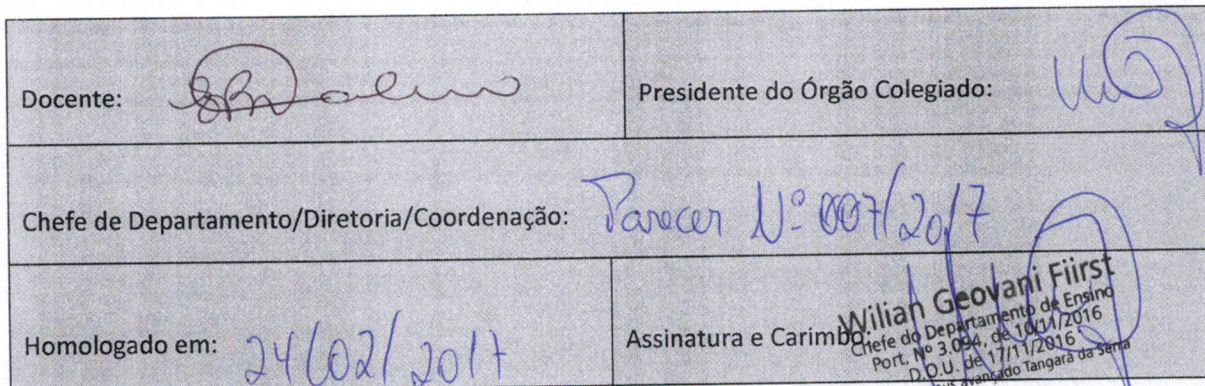 Docente:
Presidente do Órgão Colegiado:
Chefe de Departamento/Diretoria/Coordenação: Parecer Nº 007/2017
Homologado em: 24/02/2017
Assinatura e Carimbo:
Wilian Geovani Fiirst
Chefe do Departamento de Ensino
Port. Nº 3.094, de 10/11/2016
D.O.U. de 17/11/2016
avançado Tangará da Serra